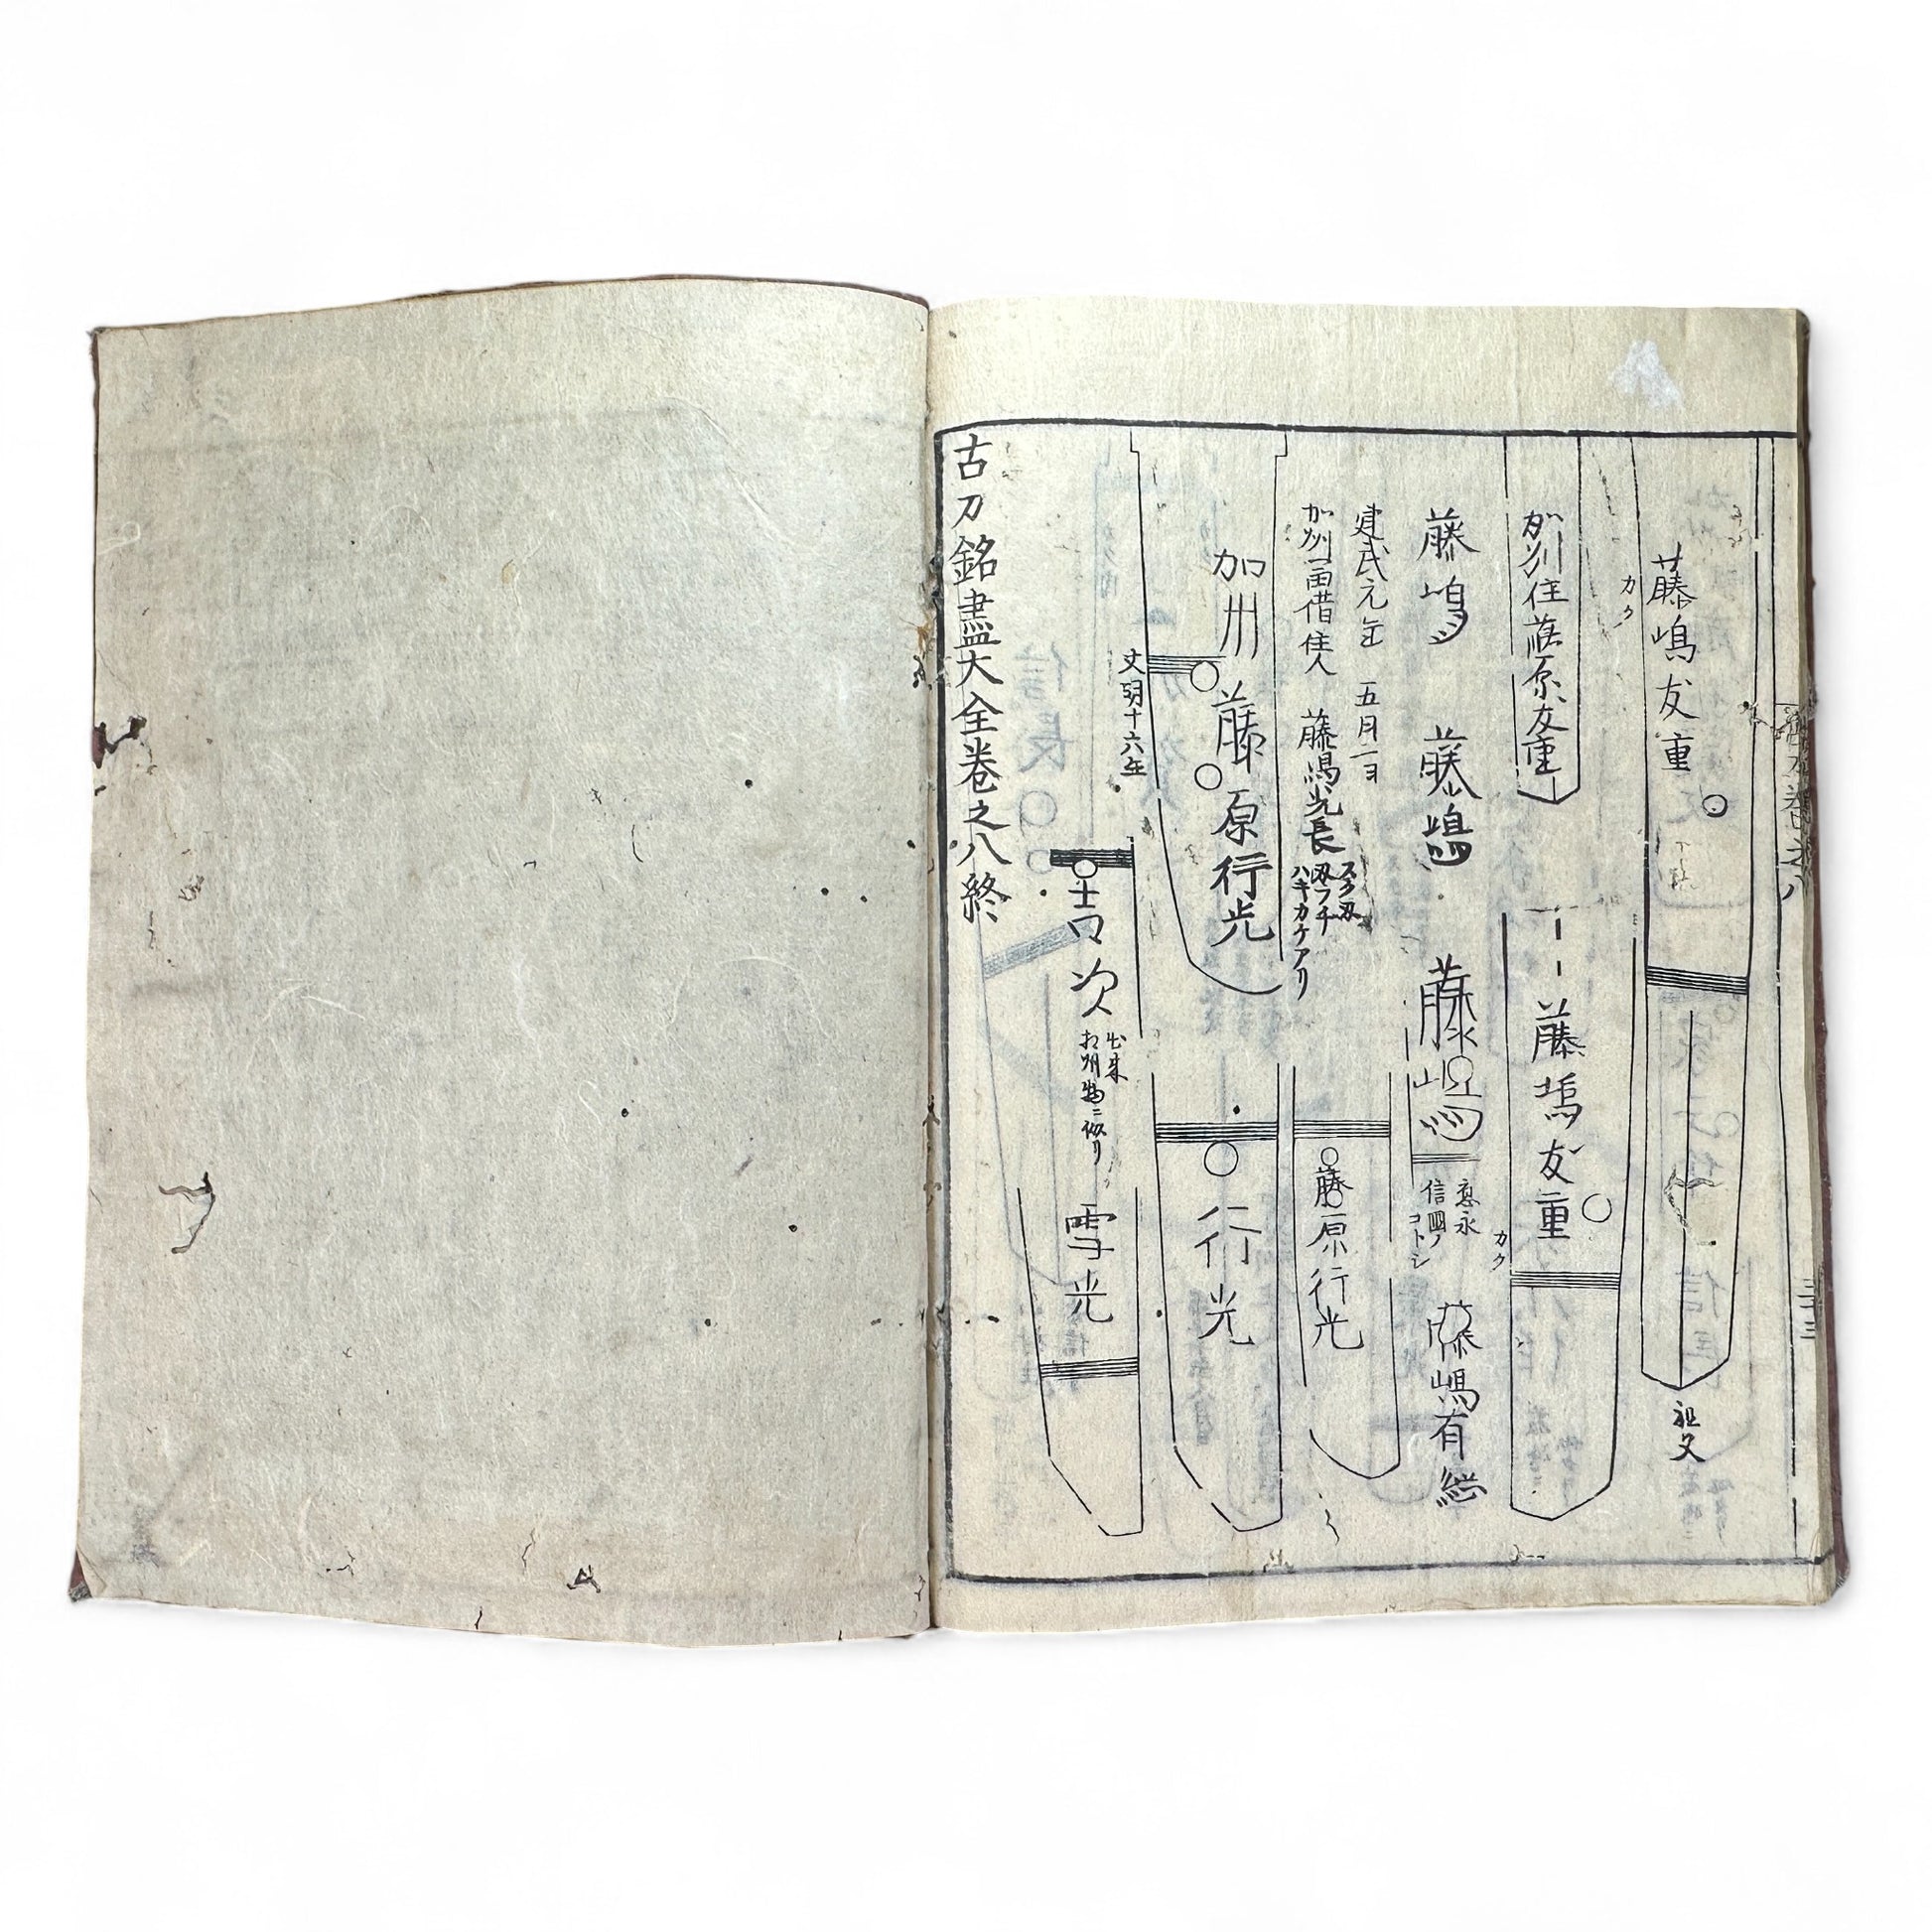 藤嶋友重
カク
祖父
加州住藤原友重
藤嶋友重
カク
藤嶋
藤嶋
藤嶋
應永
信國ノ
コトシ
藤嶋有総
建武元年 五月一日
加州 住人 藤嶋光長
スク刃
刃フチ
ハキカケアリ
藤原行光
加州藤原行光
行光
文明十六年
吉次
出来
相州物ニ似リ
雪光
古刀銘盡大全卷之八終
卷之八
三十三